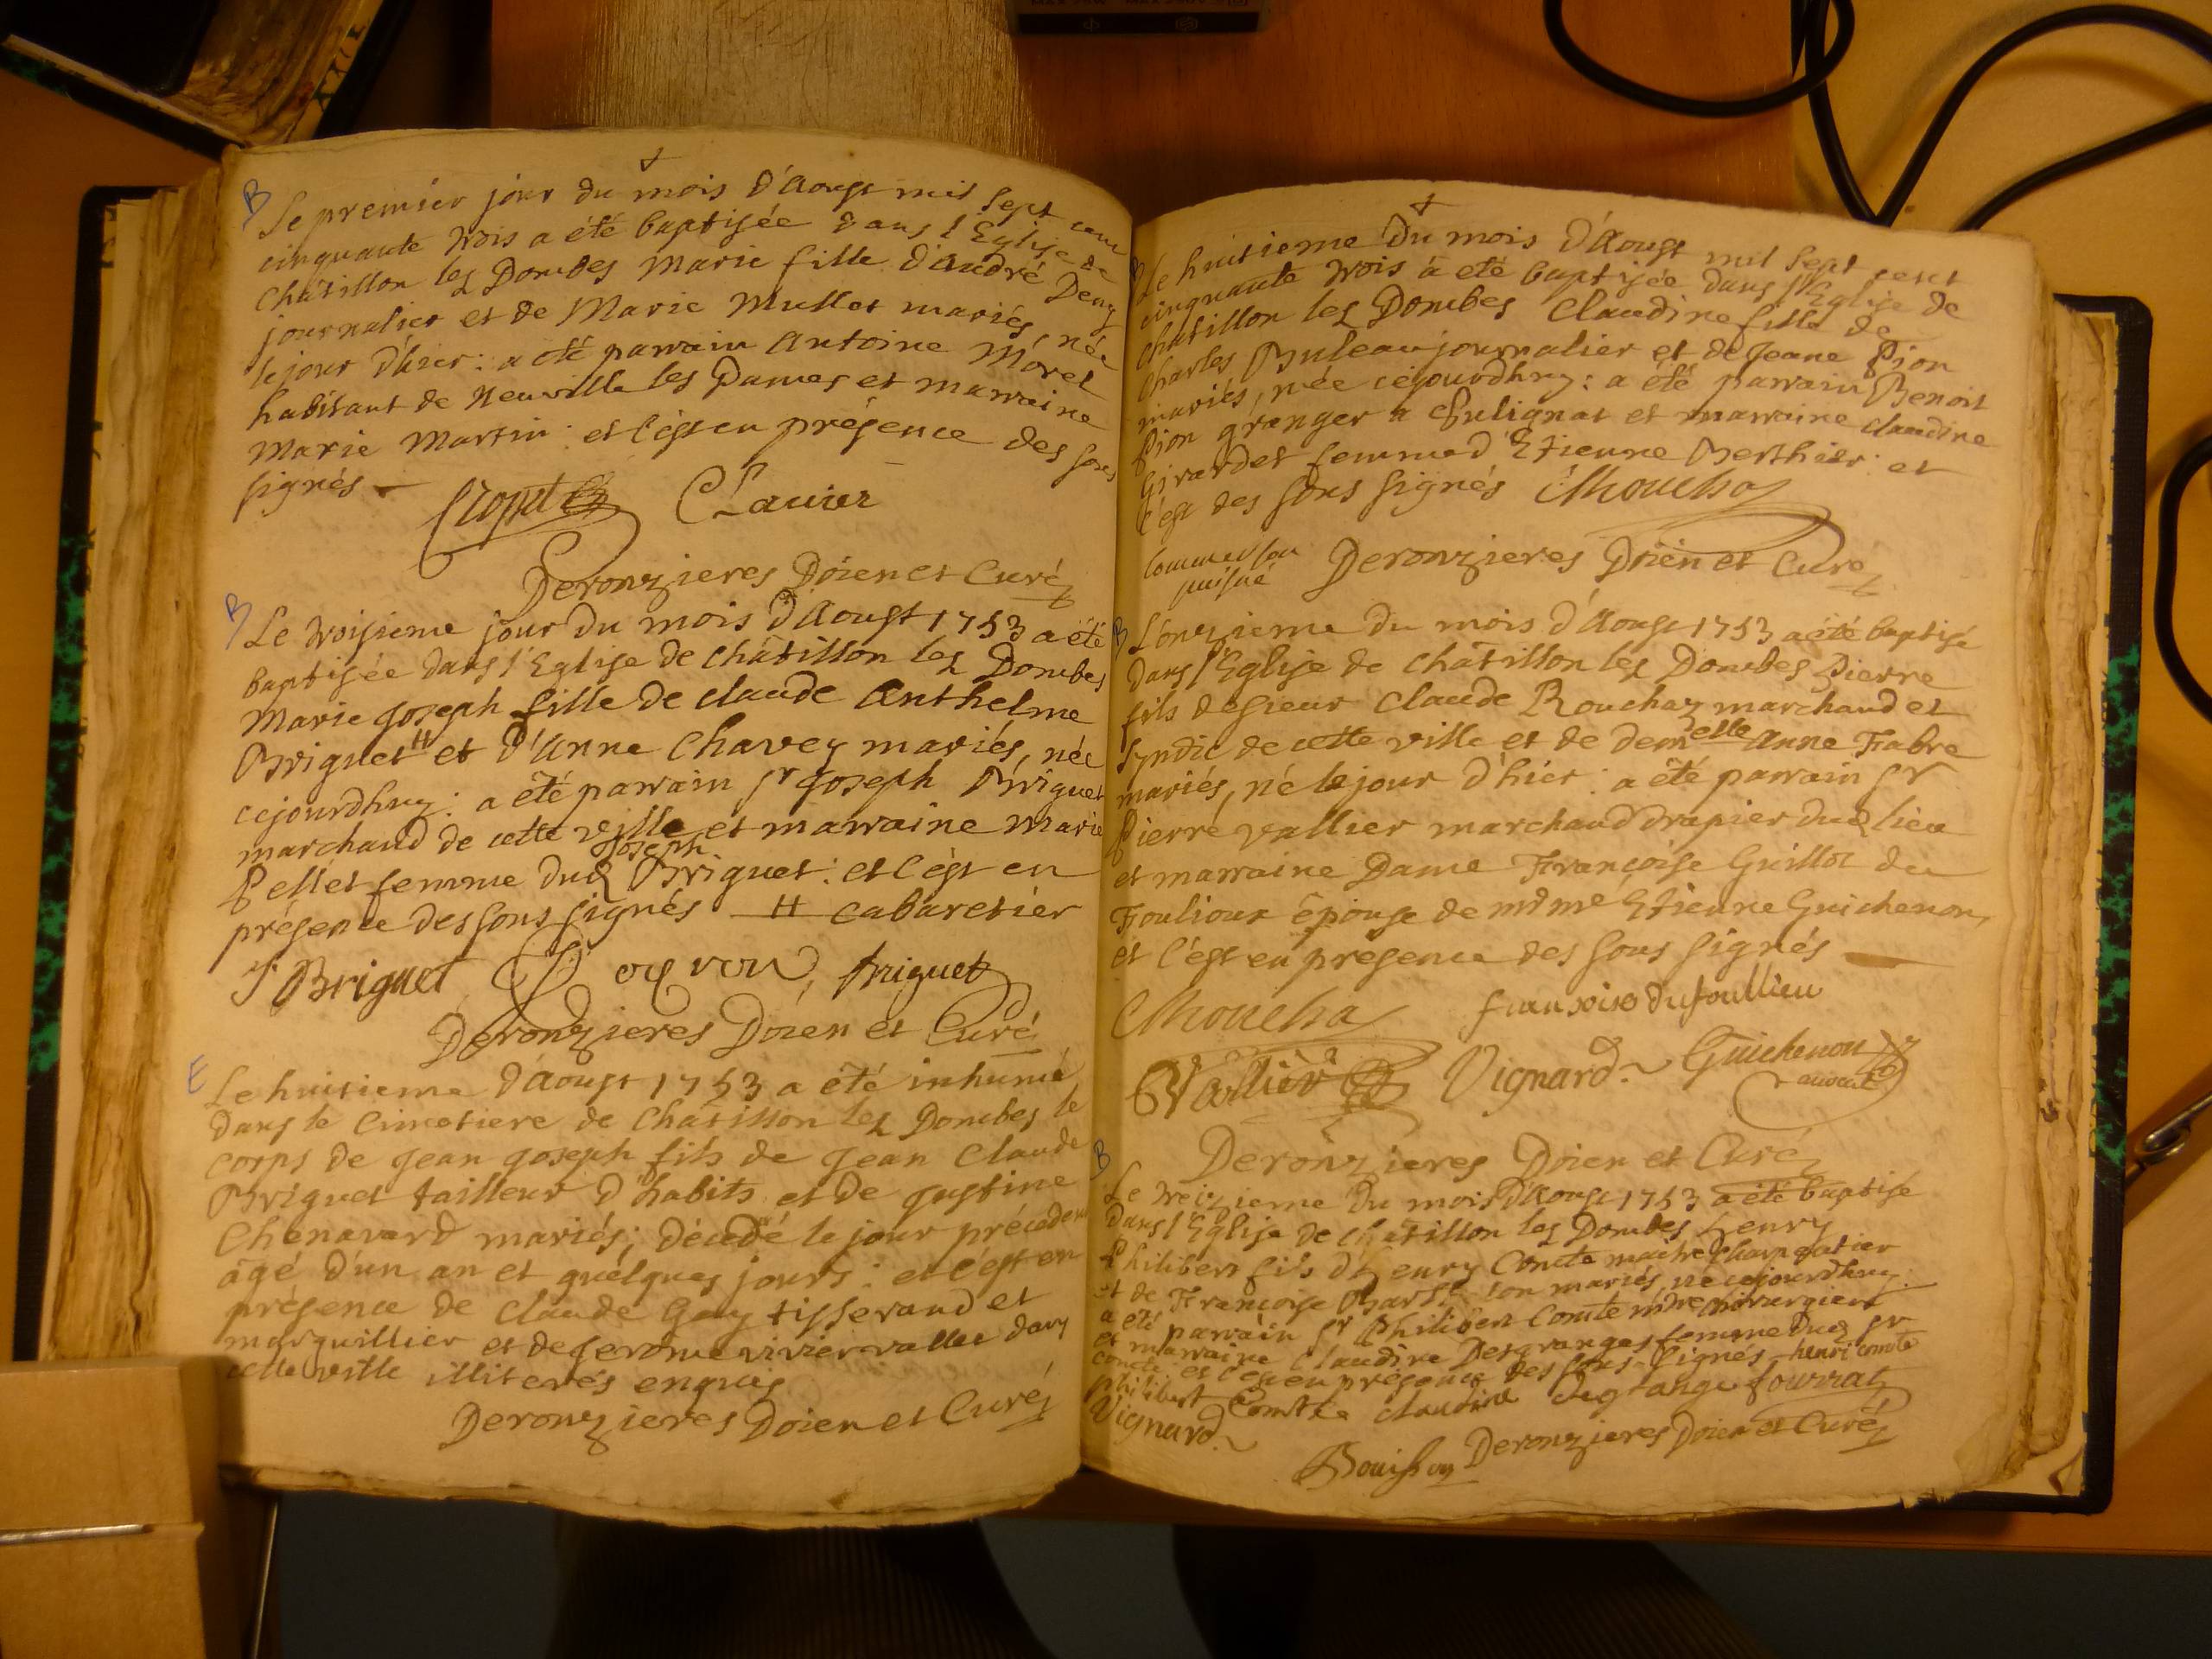 B
Le premier jour du mois d'Aoust mil sept cent
cinquante trois a été baptisée dans l'Eglise de
Châtillon les Dombes Marie fille d'André Deny
journalier et de Marie Mullet mariés, née
le jour d'hier : a été parrain Antoine Morel
habitant de Neuville les Dames et marraine
Marie Martin : et c'ést en présence des sous
signés
Clavier
Deronzieres Doien et Curé
B
Le troisieme jour du mois d'Aoust 1753 a été
baptisée dans l'Eglise de Châtillon les Dombes
Marie Joseph fille de Claude Anthelme
Briguet H et d'Anne Chavey mariés, née
cejourdhuy : a été parrain sr Joseph Briguet
marchand de cette ville et marraine Marie
Joseph
Pellet femme dud Briguet : et c'ést en
présence des sous signés H cabaretier
J. Briguet Briguet
Deronzieres Doien et Curé
E
Le huitieme d'Aoust 1753 a été inhumé
dans le Cimetiere de Châtillon les Dombes le
corps de Jean Joseph fils de Jean Claude
Briguet tailleur d'habits et de Justine
Chenavard mariés ; décedé le jour précedent
âgé d'un an et quélques jours : et c'ést en
présence de Claude Gay tisserand et
marguillier et de Jerôme vivier vallet dans
cette ville illiterés enquis
Deronzieres Doien et Curé
B
Le huitieme Du mois D'Aoust mil sept cent
cinquante trois à eté baptisée dans l'Eglise de
Châtillon les Dombes Claudine fille de
Charles Buleau journalier et de Jeane Pion
mariés, née cejourdhuy : a été parrain Benoit
Pion granger a Sulignat et marraine Claudine
Girardet femme d'Etienne Berthier : et
c'ést des sous signés CMoucha
Commerson
puisné Deronzieres Doien et Curé
B
L'onzieme du mois d'Aoust 1753 a été baptisé
dans l'Eglise de Châtillon les Dombes Pierre
fils de sieur Claude Rouchay marchand et
syndic de cette ville et de demelle Anne Fabre
mariés, né le jour d'hier : a été parrain sr
Pierre Vallier marchand drapier dud lieu
et marraine Dame Françoise Guillot du
Foulioux épouse de Etienne Guichenon,
et c'ést en présence des sous signés
CMoucha fransoise dufoullieu
Vallier Vignard Guichenon
avocat
Deronzieres Doien et Curé
B
Le treizieme du mois d'Aoust 1753 a été baptisé
dans l'Eglise de Châtillon les Dombes Henry
Philibert fils d'Henry Comte maitre Charpatier
et de Françoise mariés, né cejourdhuy :
a été parrain sr Philibert Comte chirurgien
et marraine Claudine Desgranges femme dud sr
Comte et c'ést en présence des sous signés henri comte
philibert Comte claudine degrange fourrat
Vignard
Bouisson Deronzieres Doien et Curé